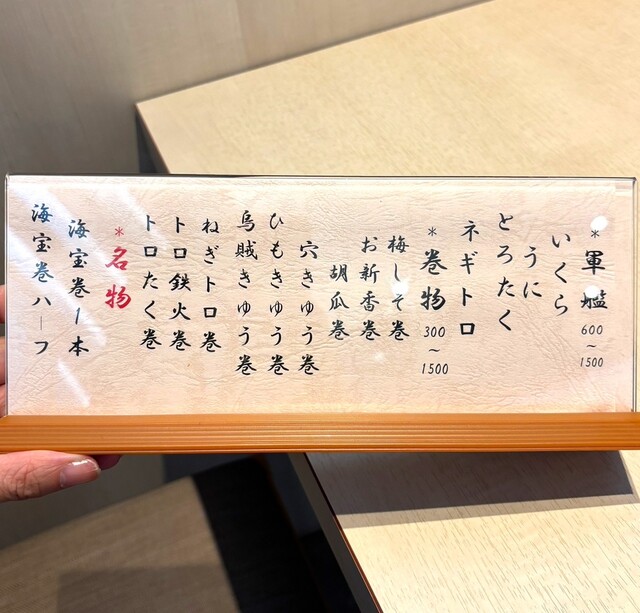 ＊軍艦
600
〜
1500
いくら
うに
とろたく
ネギトロ
＊巻物
300
〜
1500
梅しそ巻
お新香巻
胡瓜巻
穴きゅう巻
ひもきゅう巻
烏賊きゅう巻
ねぎトロ巻
トロ鉄火巻
トロたく巻
＊名物
海宝巻1本
海宝巻ハーフ